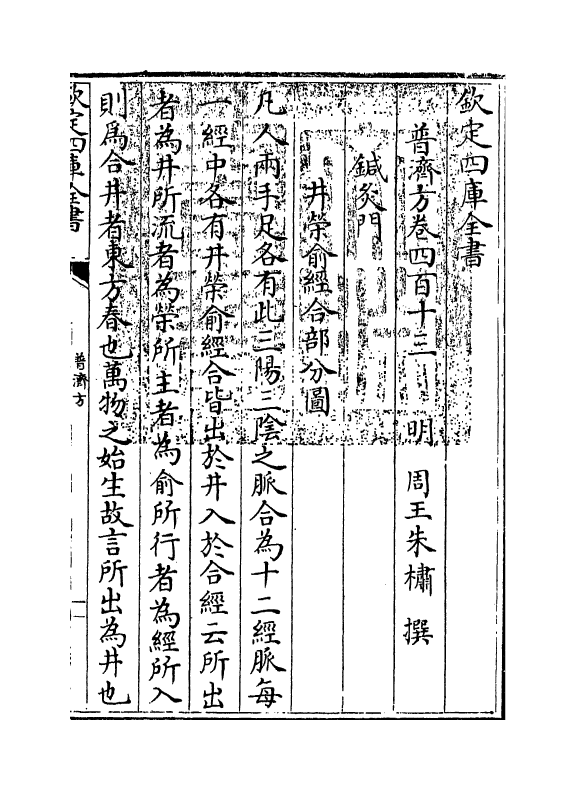 欽定四庫全書
普濟方卷四百十三
明 周王朱橚 撰
鍼灸門
井榮俞經合部分圖
凡人兩手足各有此三陽三陰之脈合為十二經脈每
一經中各有井榮俞經合皆出於井入於合經云所出
者為井所流者為榮所主者為俞所行者為經所入
則為合井者東方春也萬物之始生故言所出為井也
欽定四庫全書
普濟方